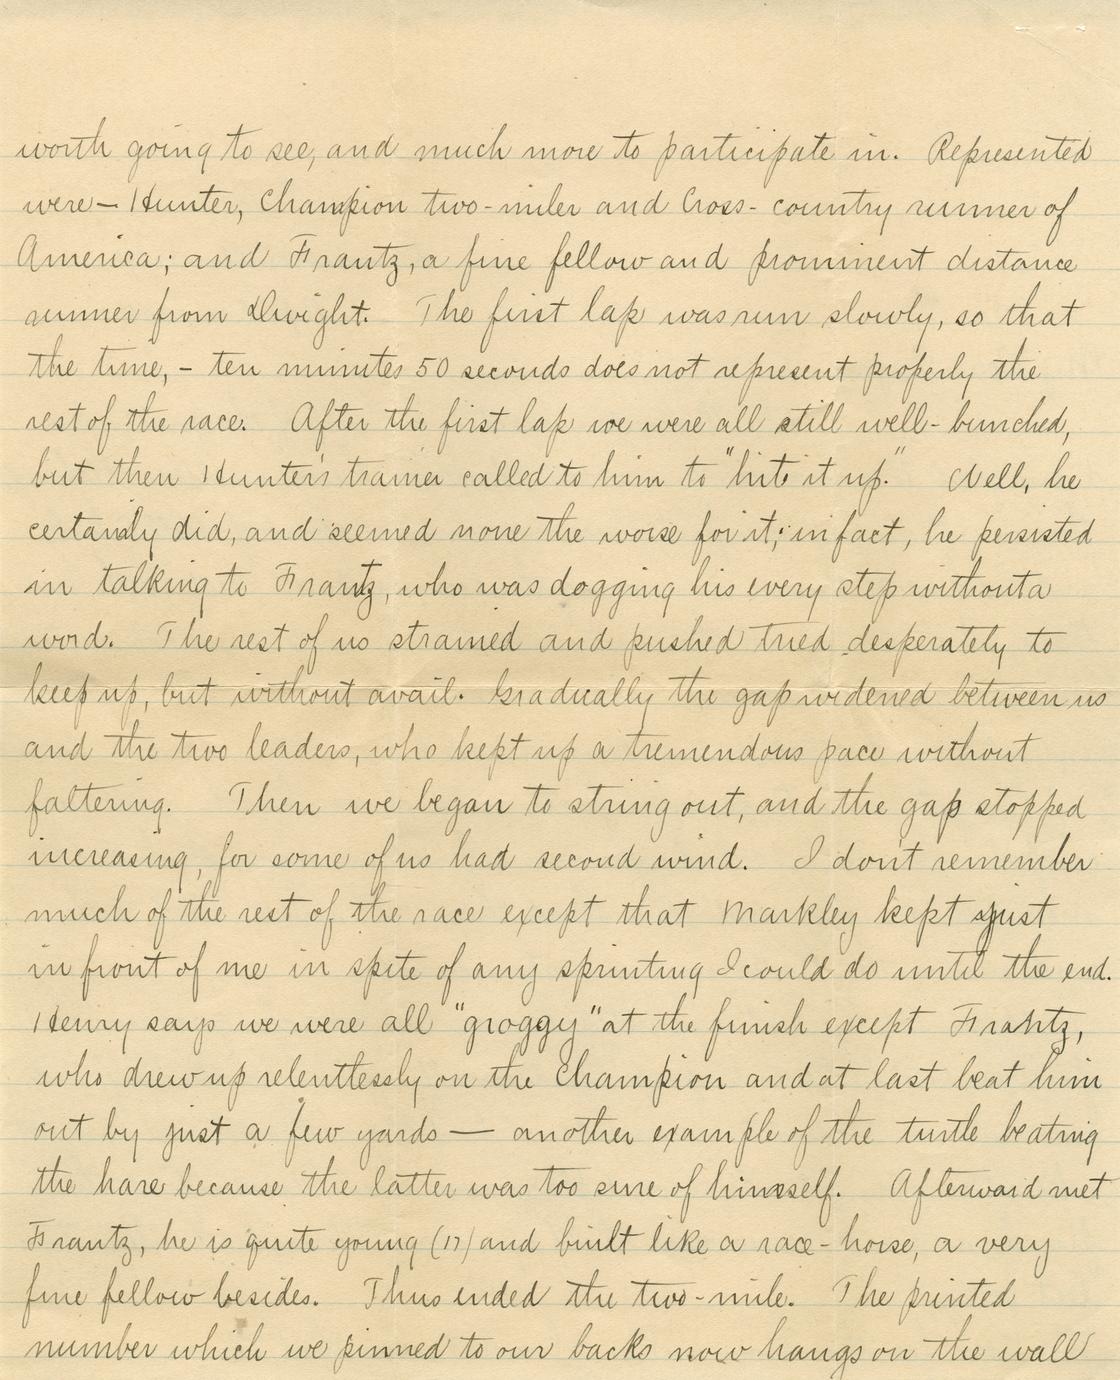 worth going to see, and much more to participate in. Represented
were — Hunter, Champion two-miler and Cross-country runner of
America; and Frantz, a fine fellow and prominent distance
runner from Dwight. The first lap was run slowly, so that
the time, - ten minutes 50 seconds does not represent properly the
rest of the race. After the first lap we were all still well-bunched,
but then Hunter's trainer called to him to "hit it up." Well, he
certainly did, and seemed none the worse for it; in fact, he persisted
in talking to Frantz, who was dogging his every step without a
word. The rest of us strained and pushed tried desperately to
keep up, but without avail. Gradually the gap widened between us
and the two leaders, who kept up a tremendous pace without
faltering. Then we began to string out, and the gap stopped
increasing, for some of us had second wind. I don't remember
much of the rest of the race except that Markley kept just
in front of me in spite of any sprinting I could do until the end.
Henry says we were all "groggy" at the finish except Frantz,
who drew up relentlessly on the Champion and at last beat him
out by just a few yards — another example of the turtle beating
the hare because the latter was too sure of himself. Afterward met
Frantz, he is quite young (17) and built like a race-horse, a very
fine fellow besides. Thus ended the two-mile. The printed
number which we pinned to our backs now hangs on the wall